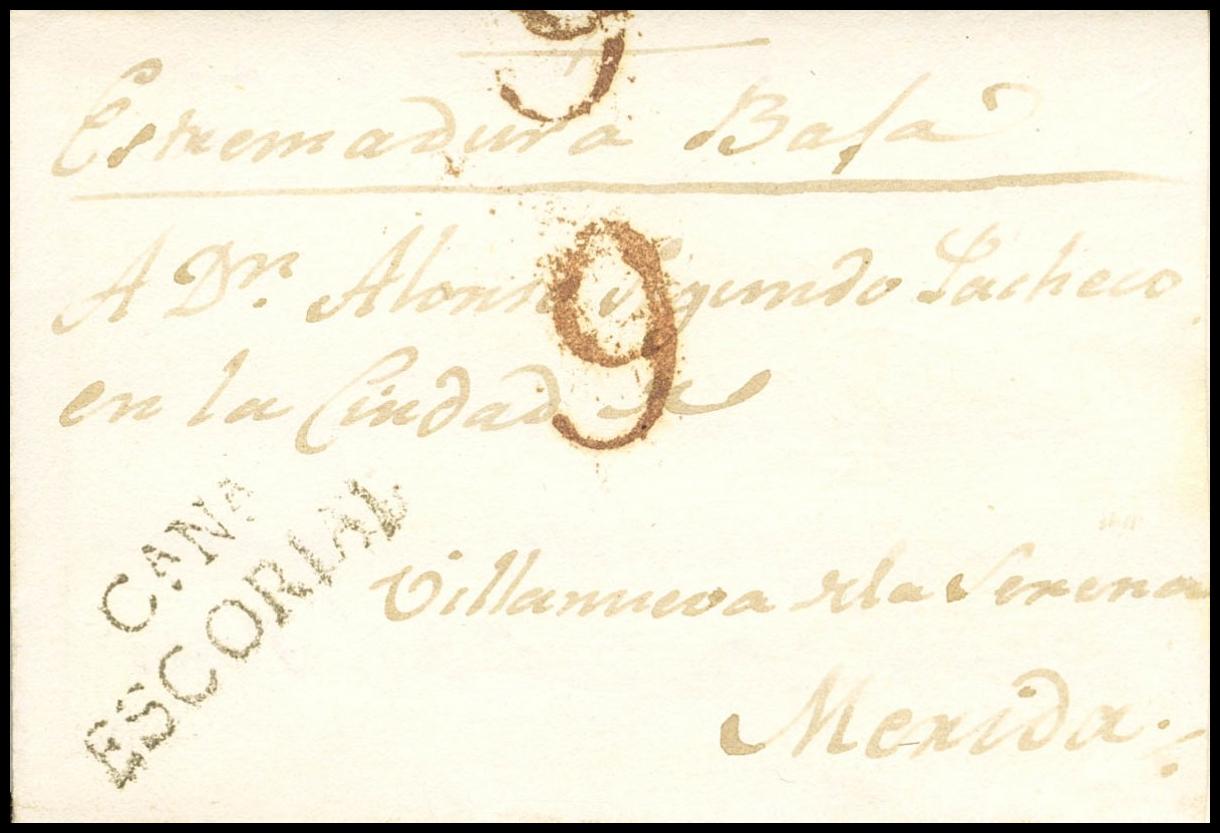 9
Estremadura Baja
A Dn. Alonso Segundo Pacheco
en la Ciudad de
9
CANA
ESCORIAL
Villanueva dela Serena
Merida.